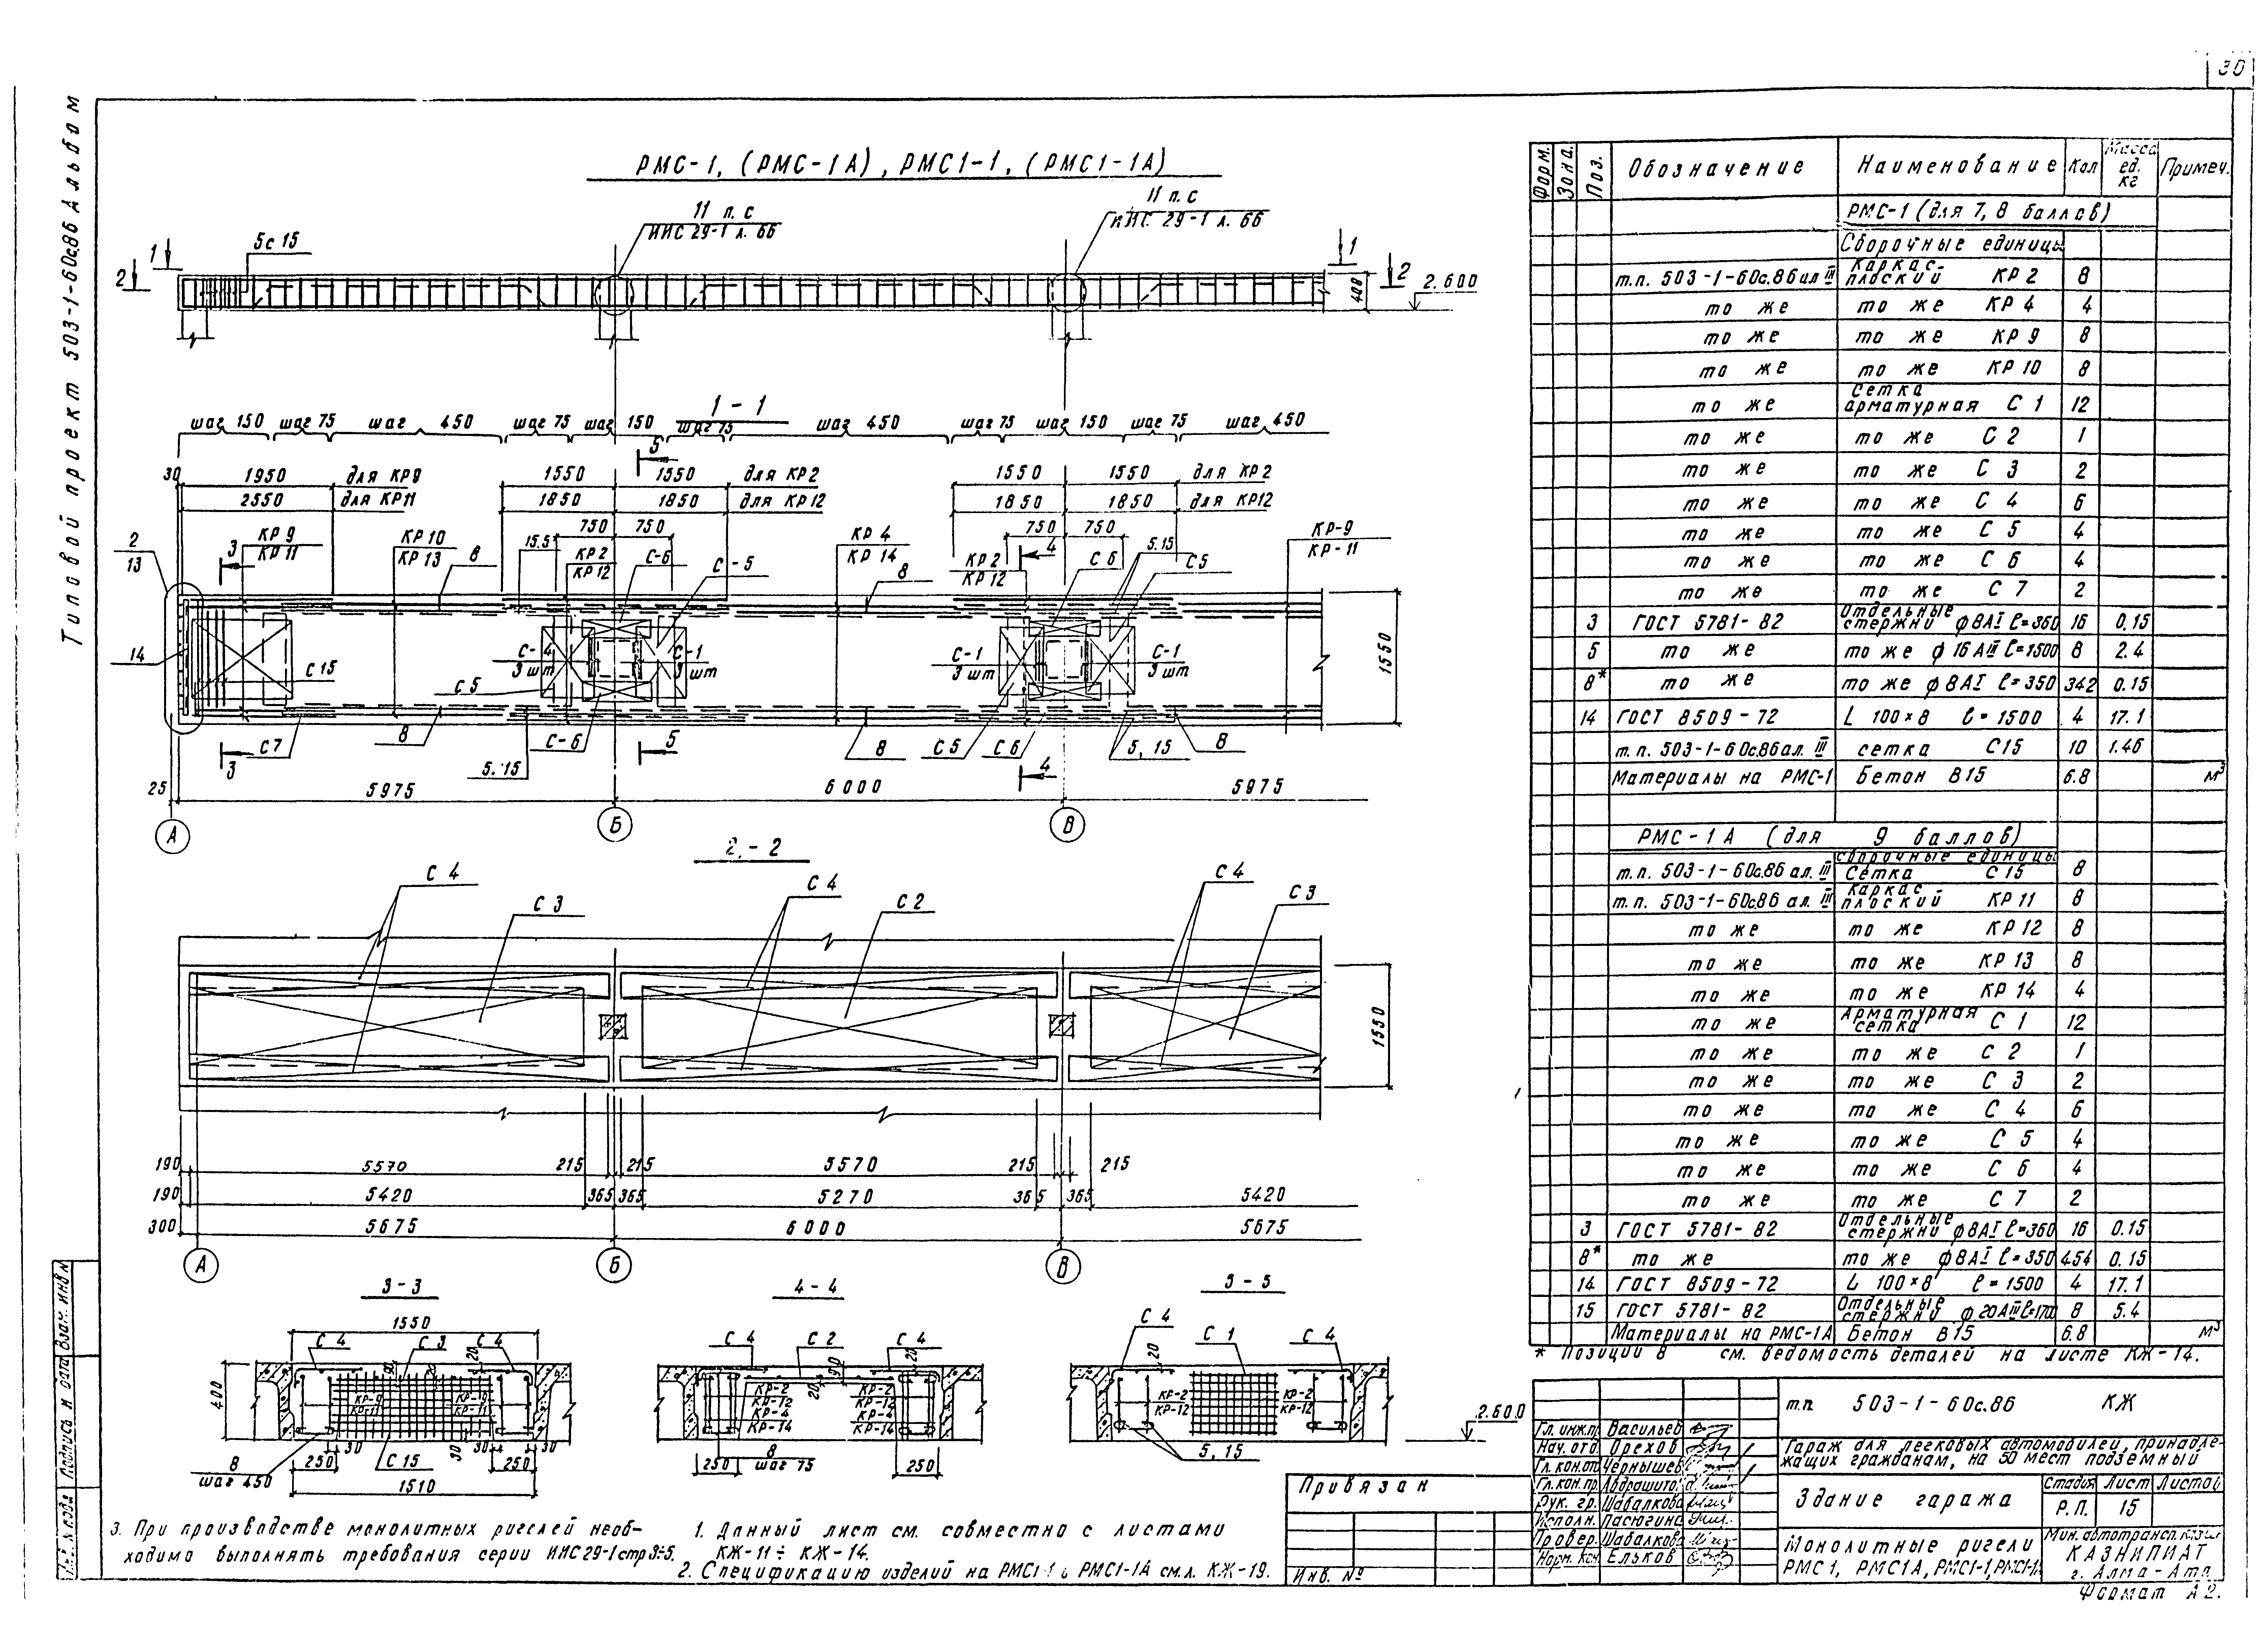 30
Типовой проект 503-1-60с.86 Альбом
РМС-1, (РМС-1А), РМС1-1, (РМС1-1А)
11 п.с
ИИС 29-1 л. 66
11 п.с
ИИС 29-1 л. 66
5с 15
1
2
1
2
408
2.600
1-1
шаг 150 шаг 75 шаг 450 шаг 75 шаг 150 шаг 75 шаг 450 шаг 75 шаг 150 шаг 75 шаг 450
5
30 1950 для КР9 1550 1550 для КР2 1550 1550 для КР2
2550 для КР11 1850 1850 для КР12 1850 1850 для КР12
750 750 750 750
2
13
3
КР 9
КР 11
КР 10
КР 13
8
15.5
КР 2
КР 12
С-6
С-5
КР 4
КР 14
8
КР 2
КР 12
4
С 6
5.15
С 5
КР-9
КР-11
14
С 15
С-4
3 шт
С-1
3 шт
С-1
3 шт
С-1
3 шт
1550
С 5
С 7
8
С-6
5
8
С 5
С 6
5, 15
8
3
5.15
4
25 5975 6000 5975
А Б В
2-2
С 4 С 3 С 4 С 2 С 4 С 3
1550
190 5570 215 215 5570 215 215
190 5420 365 365 5270 365 365 5420
300 5675 6000 5675
А Б В
3-3
1550
С 4 С 3 С 4
20
400
КР-9
КР-11
КР-10
КР-11
30 30 30 30
8
шаг 450
250 С 15 250
1510
4-4
С 4 С 2 С 4
20
20
КР-2
КР-12
КР-4
КР-14
КР-2
КР-12
КР-4
КР-14
250 8
шаг 75
250
5-5
С 4 С 1 С 4
20
КР-2
КР-12
КР-2
КР-12
5, 15
2.600
3. При производстве монолитных ригелей необ-
ходимо выполнять требования серии ИИС 29-1 стр 3÷5.
1. Данный лист см. совместно с листами
КЖ-11 ÷ КЖ-14.
2. Спецификацию изделий на РМС1-1 и РМС1-1А см.л. КЖ-19.
Форм. Зона. Поз. Обозначение Наименование Кол Масса ед. кг Примеч.
РМС-1 (для 7, 8 баллов)
Сборочные единицы
т.п. 503-1-60с.86 ал III Каркас плоский КР 2 8
то же то же КР 4 4
то же то же КР 9 8
то же то же КР 10 8
то же Сетка арматурная С 1 12
то же то же С 2 1
то же то же С 3 2
то же то же С 4 6
то же то же С 5 4
то же то же С 6 4
то же то же С 7 2
3 ГОСТ 5781-82 Отдельные стержни ф8АI ℓ=360 16 0.15
5 то же то же ф 16 АIII ℓ=1500 8 2.4
8* то же то же ф8АI ℓ=350 342 0.15
14 ГОСТ 8509-72 L 100×8 ℓ=1500 4 17.1
т.п. 503-1-60с.86 ал. III сетка С15 10 1.46
Материалы на РМС-1 Бетон В15 6.8 м³
РМС-1А (для 9 баллов)
Сборочные единицы
т.п. 503-1-60с.86 ал. III Сетка С 15 8
т.п. 503-1-60с.86 ал. III Каркас плоский КР 11 8
то же то же КР 12 8
то же то же КР 13 8
то же то же КР 14 4
то же Арматурная сетка С 1 12
то же то же С 2 1
то же то же С 3 2
то же то же С 4 6
то же то же С 5 4
то же то же С 6 4
то же то же С 7 2
3 ГОСТ 5781-82 Отдельные стержни ф8АI ℓ=360 16 0.15
8* то же то же ф8АI ℓ=350 454 0.15
14 ГОСТ 8509-72 L 100×8 ℓ=1500 4 17.1
15 ГОСТ 5781-82 Отдельные стержни ф 20АIII ℓ=1700 8 5.4
Материалы на РМС-1А Бетон В15 6.8 м³
* Позиции 8 см. ведомость деталей на листе КЖ-14.
т.п. 503-1-60с.86 КЖ
Гл. инж.пр Васильев
Нач. отд. Орехов
Гл. кон.от. Чернышев
Гл. кон. пр. Абдрашито
Рук. гр. Шабалкова
Исполн. Пасюгина
Провер. Шабалкова
Норм. кон. Ельков
Гараж для легковых автомобилей, принадле-
жащих гражданам, на 50 мест подземный
Здание гаража
Стадия Лист Листов
Р.П. 15
Монолитные ригели
РМС 1, РМС1А, РМС1-1, РМС1-1А
Мин. автотрансп. КазССР
КАЗНИПИАТ
г. Алма-Ата
Формат А2.
Привязан
Инв. №
Взам. инв №
Подпись и дата
Инв. № подл